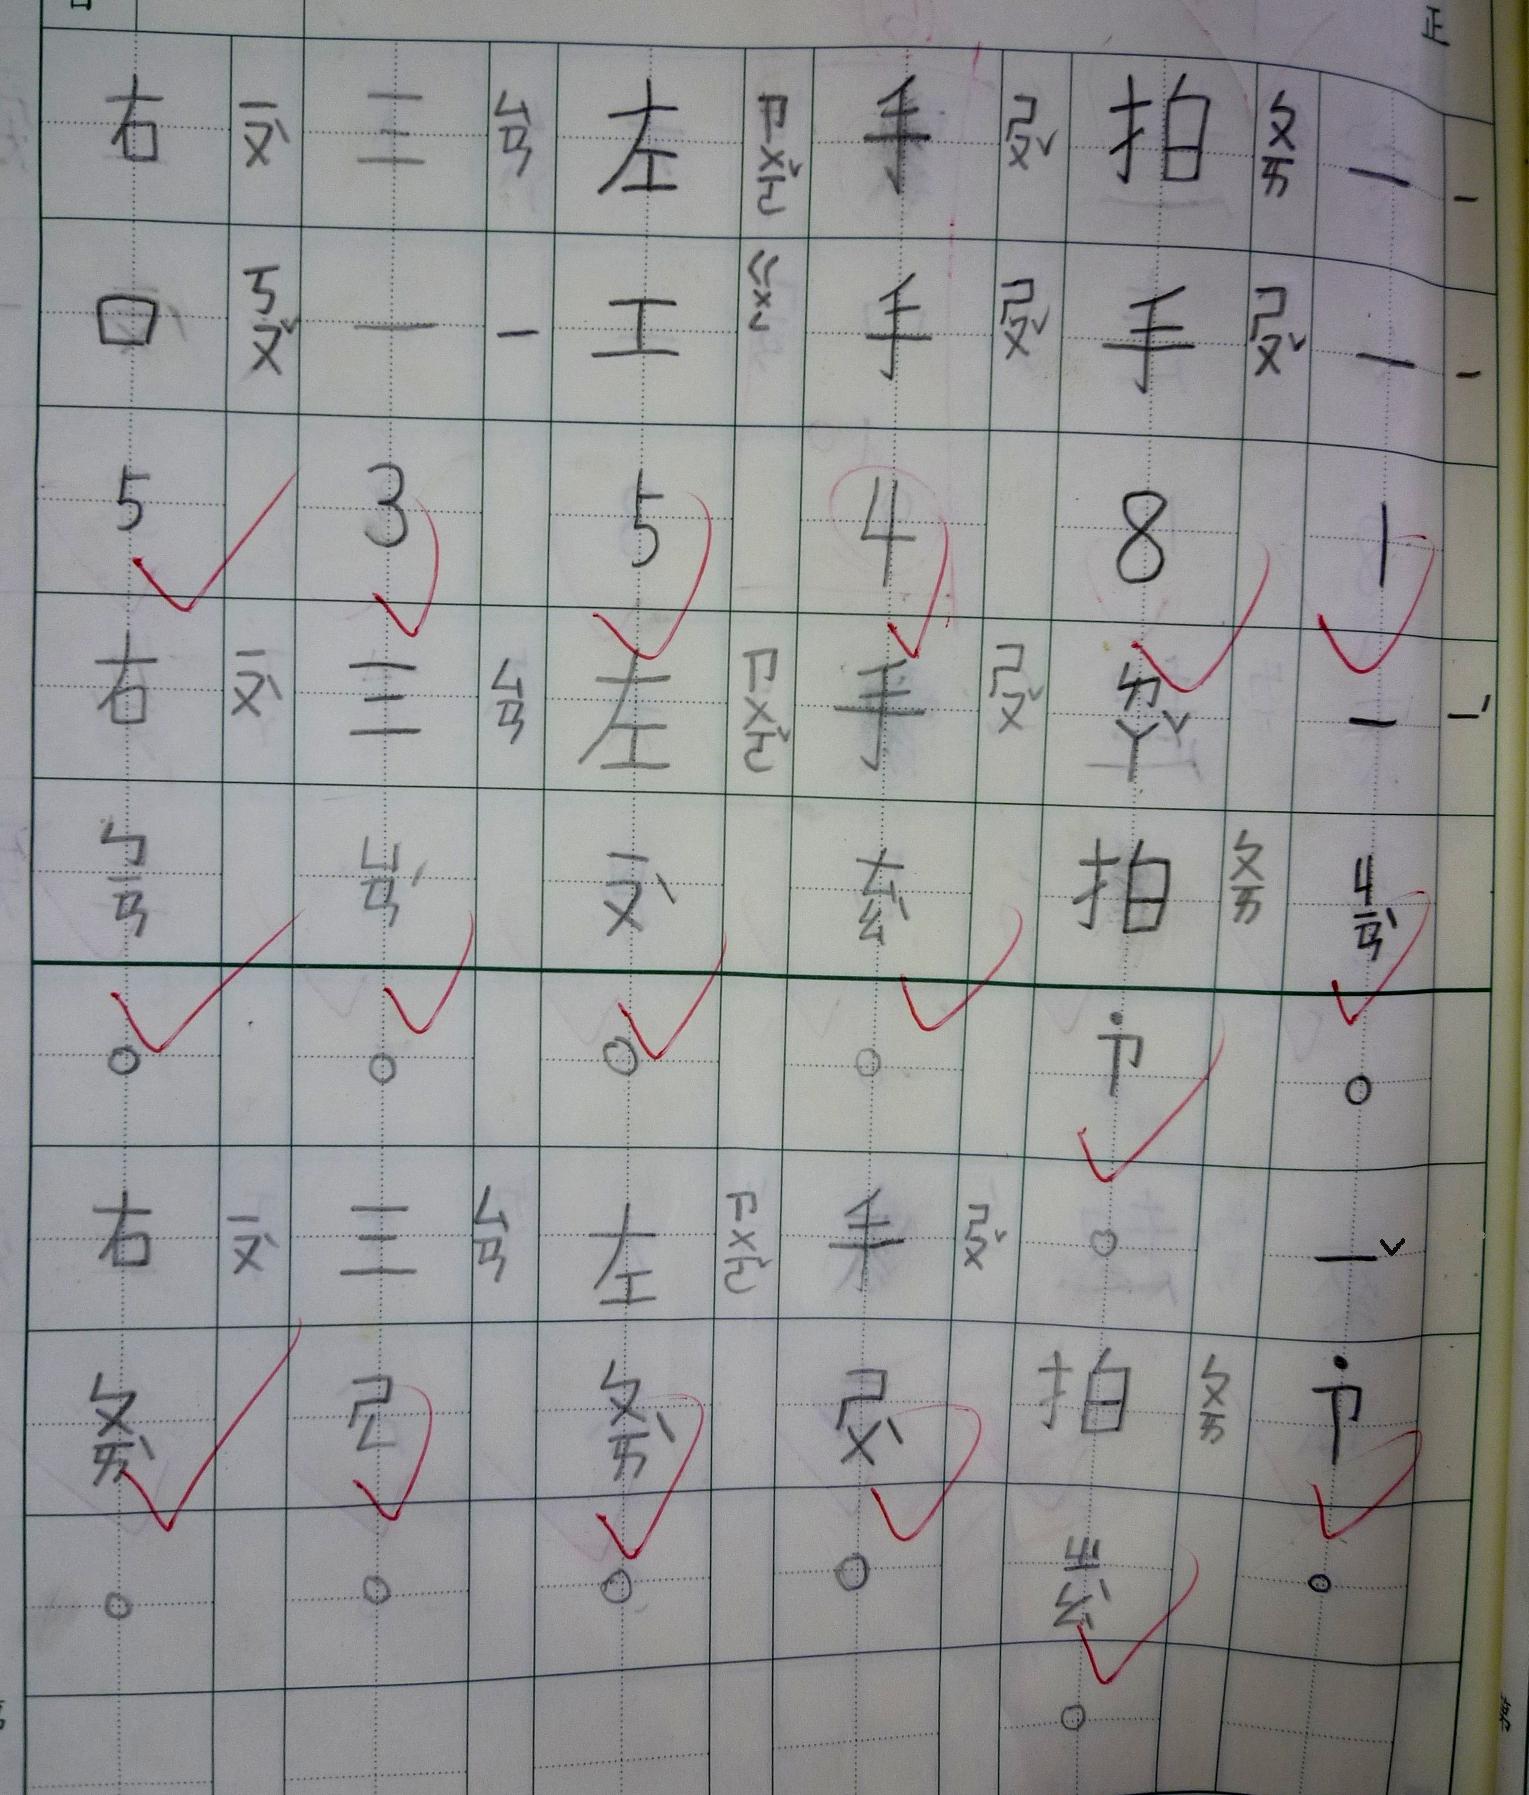 一ㄧ一ㄧ1一ㄧˋㄐㄧㄢˋ。ㄧˇ˙ㄗ。
拍ㄆㄞ手ㄕㄡˇ8ㄉㄚˇ拍ㄆㄞ˙ㄗ。拍ㄆㄞㄓㄠˋ。
手ㄕㄡˇ手ㄕㄡˇ4手ㄕㄡˇㄊㄠˋ。手ㄕㄡˇㄕㄨˋ。
左ㄗㄨㄛˇ工ㄍㄨㄥ5左ㄗㄨㄛˇㄧㄡˋ。左ㄗㄨㄛˇㄆㄞˋ。
三ㄙㄢ一ㄧ3三ㄙㄢ。三ㄙㄢㄕㄥ。
右ㄧㄡˋ口ㄎㄡˇ5右ㄧㄡˋㄅㄧㄢ。右ㄧㄡˋㄆㄞˋ。